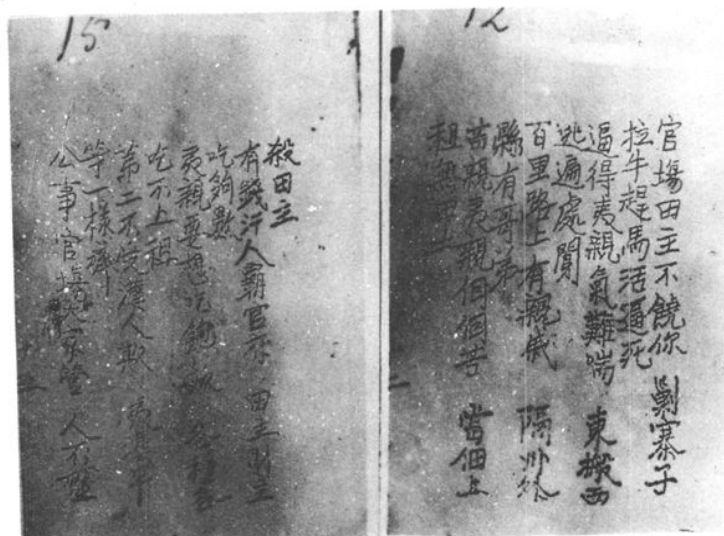 12
官塲田主不饒你 剿寨子
拉牛趕馬活逼死
逼得夷親氣難喘 東搬西
逃遍處闖
百里路上有親戚 隔州外
縣有哥弟
苗親夷親個個苦 當佃上
租無田土
15
殺田主
有錢汗人霸官府 田主財主
吃夠數
夷親要想吃飽飯
吃不上租
第二不受漢人欺
等一樣齊
公事官塲大家管 人不